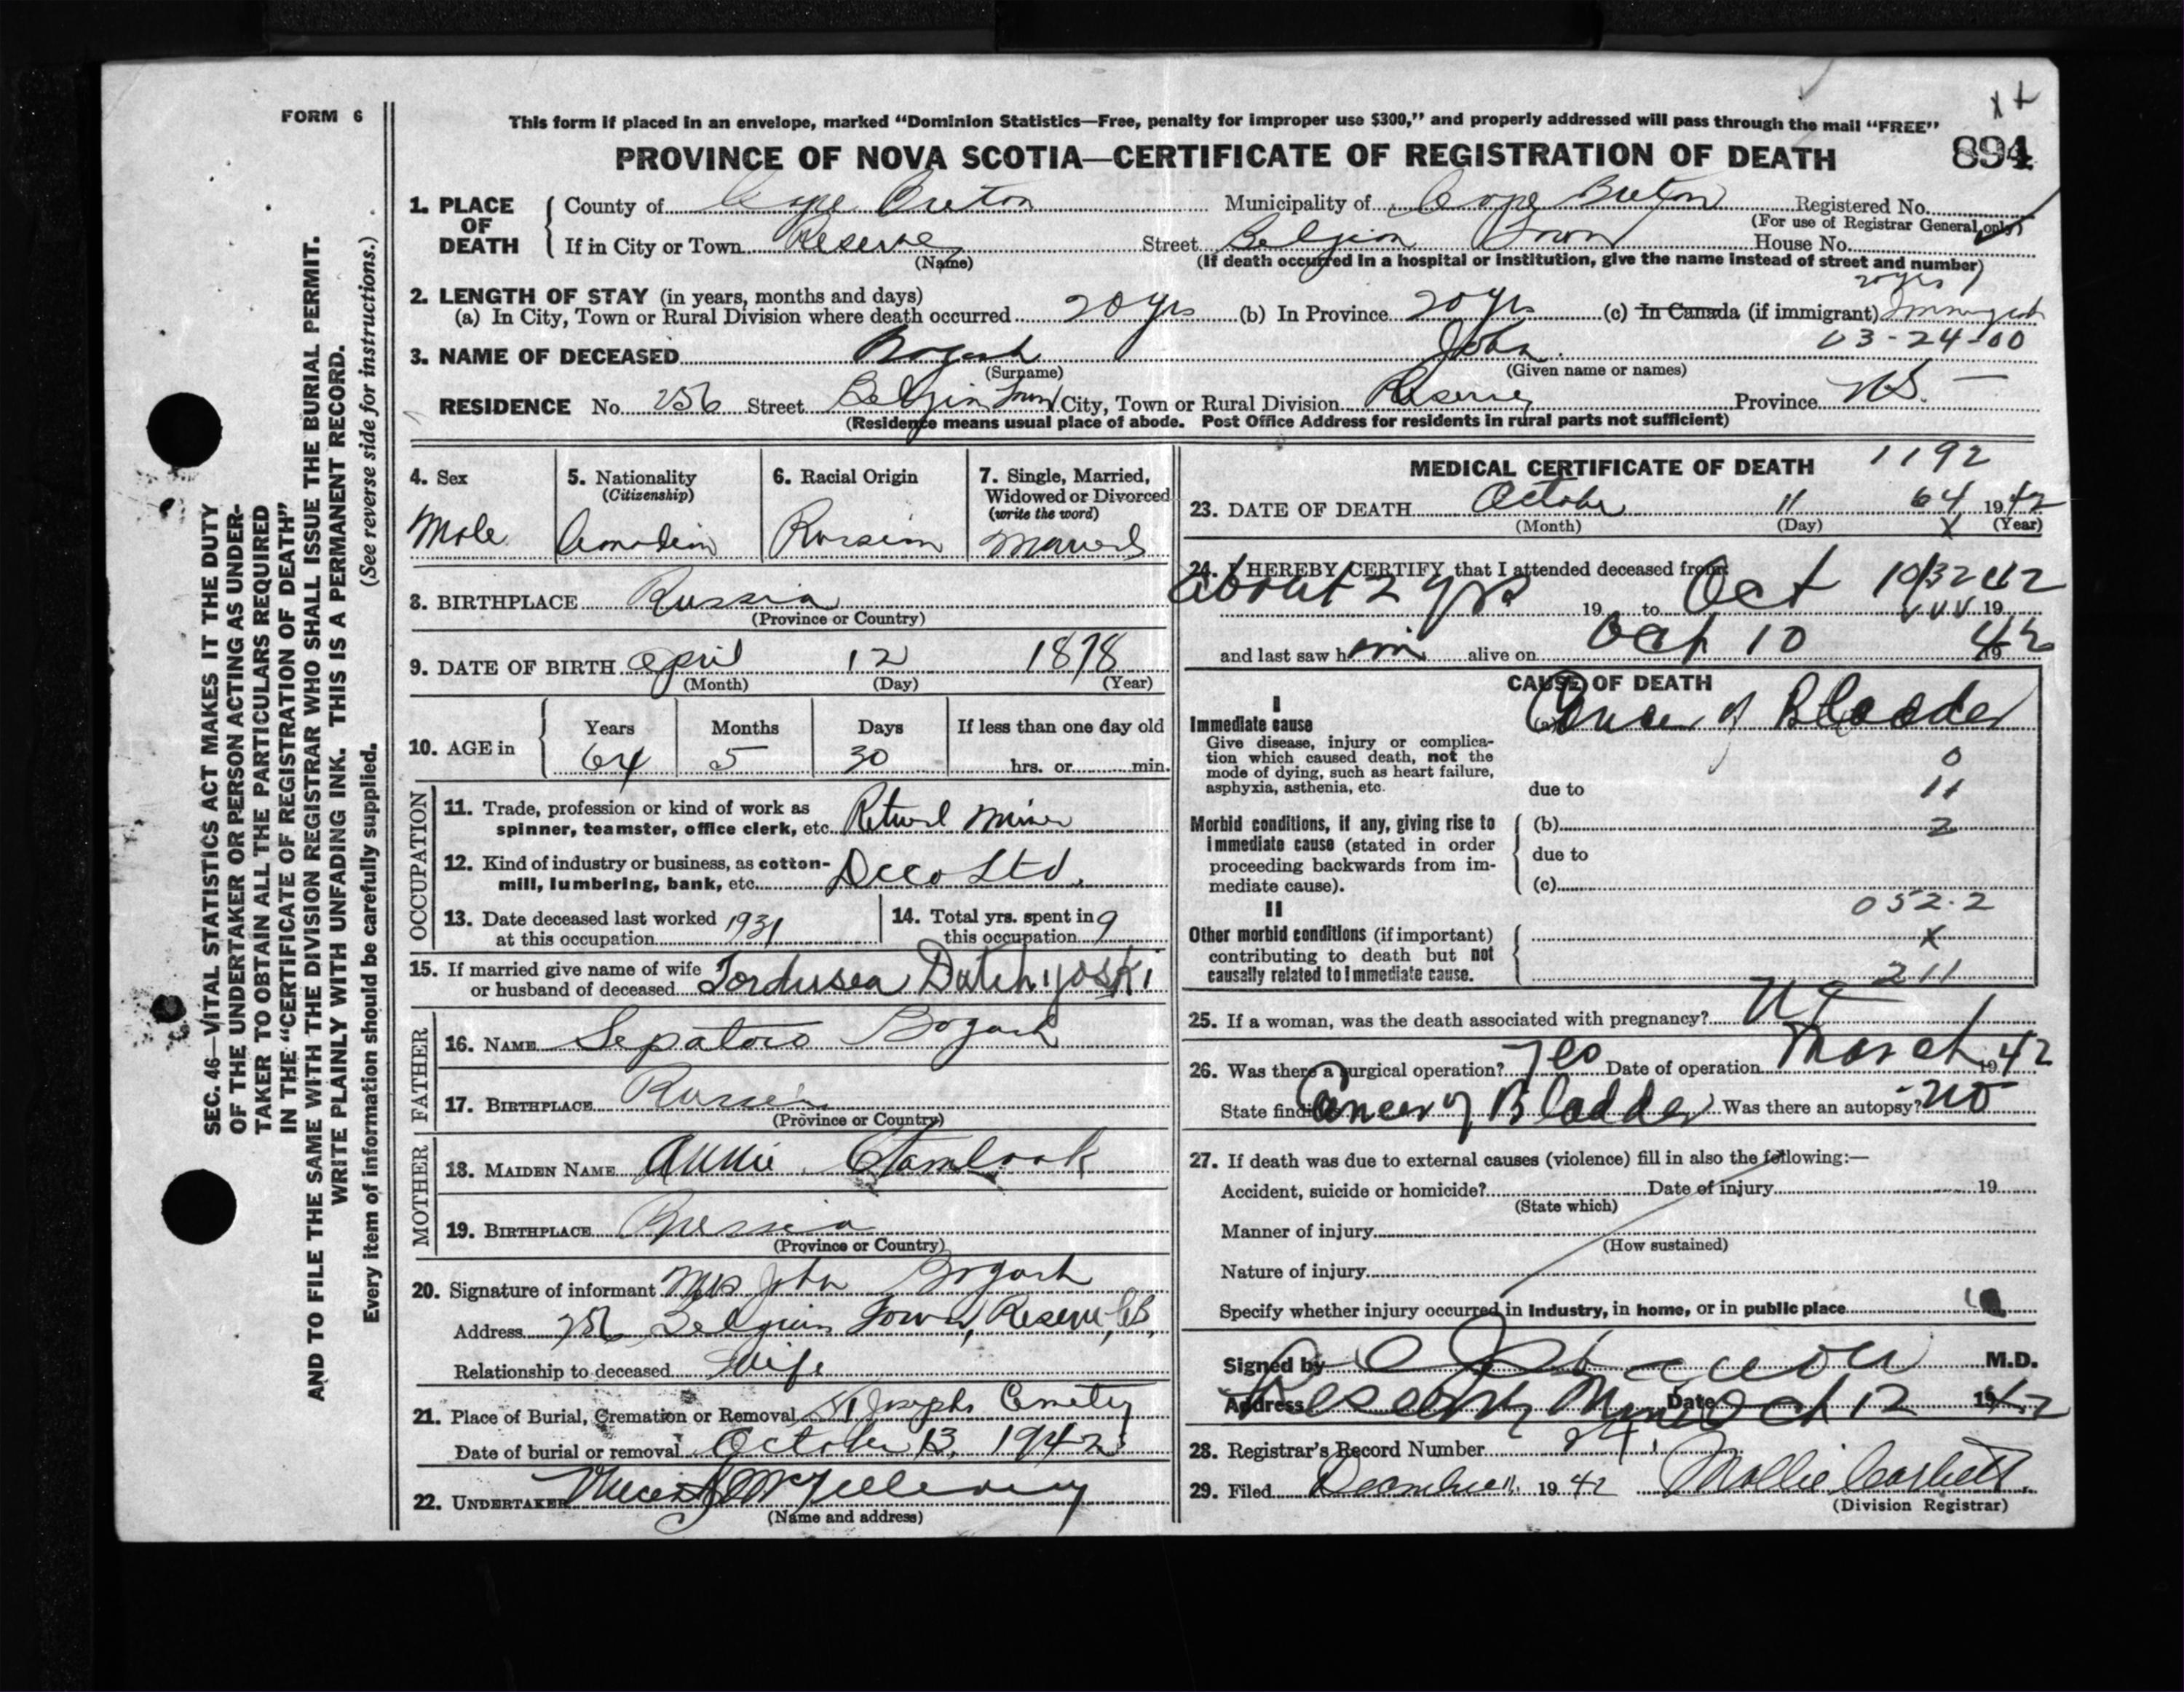 FORM 6
This form if placed in an envelope, marked “Dominion Statistics—Free, penalty for improper use $300,” and properly addressed will pass through the mail “FREE”
PROVINCE OF NOVA SCOTIA—CERTIFICATE OF REGISTRATION OF DEATH 894
1. PLACE OF DEATH
County of Cape Breton Municipality of Cape Breton Registered No.
(For use of Registrar General only)
If in City or Town Reserve Street Belgium Town House No.
(Name) (If death occurred in a hospital or institution, give the name instead of street and number)
2. LENGTH OF STAY (in years, months and days) 20 yrs
(a) In City, Town or Rural Division where death occurred 20 yrs (b) In Province 20 yrs (c) In Canada (if immigrant) Immigrant
3. NAME OF DECEASED Bogash John 03-24-00
(Surname) (Given name or names)
RESIDENCE No. 256 Street Belgium Town City, Town or Rural Division Reserve Province N.S.
(Residence means usual place of abode. Post Office Address for residents in rural parts not sufficient)
4. Sex
Male
5. Nationality
(Citizenship)
Canadian
6. Racial Origin
Russian
7. Single, Married, Widowed or Divorced
(write the word)
Married
8. BIRTHPLACE Russia
(Province or Country)
9. DATE OF BIRTH April 12 1878
(Month) (Day) (Year)
10. AGE in Years Months Days If less than one day old
64 5 30 hrs. or min.
OCCUPATION
11. Trade, profession or kind of work as
spinner, teamster, office clerk, etc. Retired Miner
12. Kind of industry or business, as cotton-
mill, lumbering, bank, etc. Dosco Ltd.
13. Date deceased last worked
at this occupation 1931
14. Total yrs. spent in
this occupation 9
15. If married give name of wife
or husband of deceased Tordusea Datchyoski
FATHER
16. NAME Bogash
17. BIRTHPLACE Russia
(Province or Country)
MOTHER
18. MAIDEN NAME Annie
19. BIRTHPLACE Russia
(Province or Country)
20. Signature of informant Mrs John Bogash
Address 256 Belgium Town, Reserve, C.B.
Relationship to deceased Wife
21. Place of Burial, Cremation or Removal St Josephs Cemetery
Date of burial or removal October 13, 1942
22. UNDERTAKER
(Name and address)
MEDICAL CERTIFICATE OF DEATH 1192
23. DATE OF DEATH October 11 64 1942
(Month) (Day) X (Year)
24. I HEREBY CERTIFY that I attended deceased from
About 2 yrs 19 to Oct 10 42
19
and last saw him alive on Oct 10 1942
CAUSE OF DEATH
I
Immediate cause (a) Cancer of Bladder
Give disease, injury or complica-
tion which caused death, not the
mode of dying, such as heart failure,
asphyxia, asthenia, etc.
0
due to 11
Morbid conditions, if any, giving rise to
immediate cause (stated in order
proceeding backwards from im-
mediate cause).
(b) 2
due to
(c)
II 052.2
Other morbid conditions (if important)
contributing to death but not
causally related to immediate cause.
X
211
25. If a woman, was the death associated with pregnancy?
26. Was there a surgical operation? Yes Date of operation March 1942
State findings Cancer of Bladder Was there an autopsy? no
27. If death was due to external causes (violence) fill in also the following:—
Accident, suicide or homicide? Date of injury 19
(State which)
Manner of injury
(How sustained)
Nature of injury
Specify whether injury occurred in industry, in home, or in public place
Signed by M.D.
Address Reserve Mines Date Oct 12 1942
28. Registrar’s Record Number
29. Filed December 11, 1942 Mollie Corbett
(Division Registrar)
SEC. 46—VITAL STATISTICS ACT MAKES IT THE DUTY
OF THE UNDERTAKER OR PERSON ACTING AS UNDER-
TAKER TO OBTAIN ALL THE PARTICULARS REQUIRED
IN THE “CERTIFICATE OF REGISTRATION OF DEATH”
AND TO FILE THE SAME WITH THE DIVISION REGISTRAR WHO SHALL ISSUE THE BURIAL PERMIT.
WRITE PLAINLY WITH UNFADING INK. THIS IS A PERMANENT RECORD.
Every item of information should be carefully supplied. (See reverse side for instructions.)